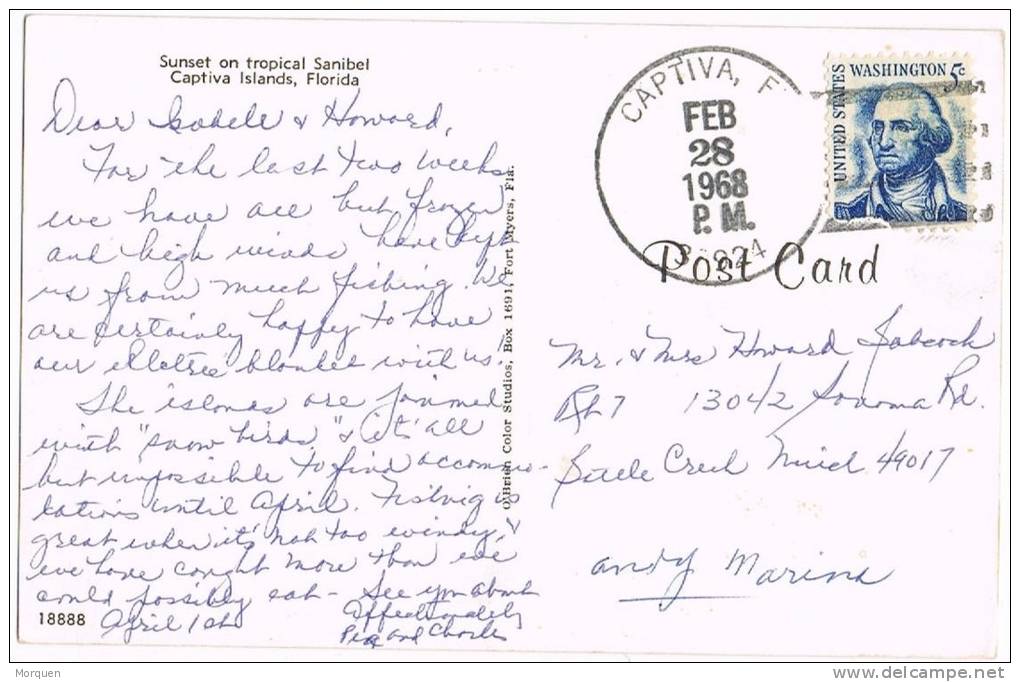 Sunset on tropical Sanibel
Captiva Islands, Florida
Dear Isabele & Howard,
For the last two weeks
we have all but frozen
and high winds have kept
us from much fishing. We
are certainly happy to have
our electric blanket with us!
The islands are jammed
with "snow birds" & it's all
but impossible to find accommo-
dations until April. Fishing is
great when it's not too windy, &
we have caught more than we
could possibly eat - See you about
April 1st
Affectionately
and Charles
18888
O'Brien Color Studios, Box 1691, Fort Myers, Fla.
CAPTIVA, F
FEB
28
1968
P. M.
UNITED STATES
WASHINGTON 5c
Post Card
Mr. & Mrs Howard Babcock
Rt 7 13042 Sonoma Rd.
Battle Creek Mich 49017
Andy Marina
Morquen
www.delcampe.net